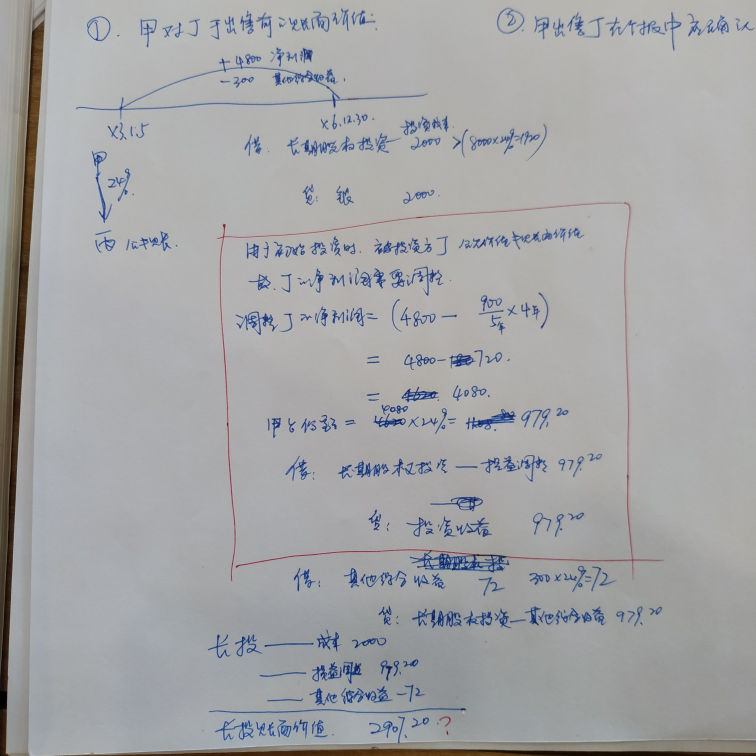 ①. 甲对丁于出售前一次账面价值.
②. 甲出售丁在个报中应确认
+4800 净利润
-300 其他综合收益.
X3.1.5
X6.12.30.
甲
24%
丙 公 账.
借: 长期股权投资—投资成本 2000 >(8000×24%=1920)
贷: 银 2000.
由于初始投资时, 被投资方丁 公允价值≠账面价值
故, 丁的净利润需要调整.
调整丁的净利润= (4800 - 900/5年 ×4年)
= 4800-720.
= 4080.
甲占份额= 4080×24%= 979.20
借: 长期股权投资 — 损益调整 979.20
贷: 投资收益 979.20
借: 其他综合收益 72 300×24%=72
贷: 长期股权投资—其他综合收益 979.20
长投 —— 成本 2000
—— 损益调整 979.20
—— 其他综合收益 -72
长投账面价值. 2907.20 ?